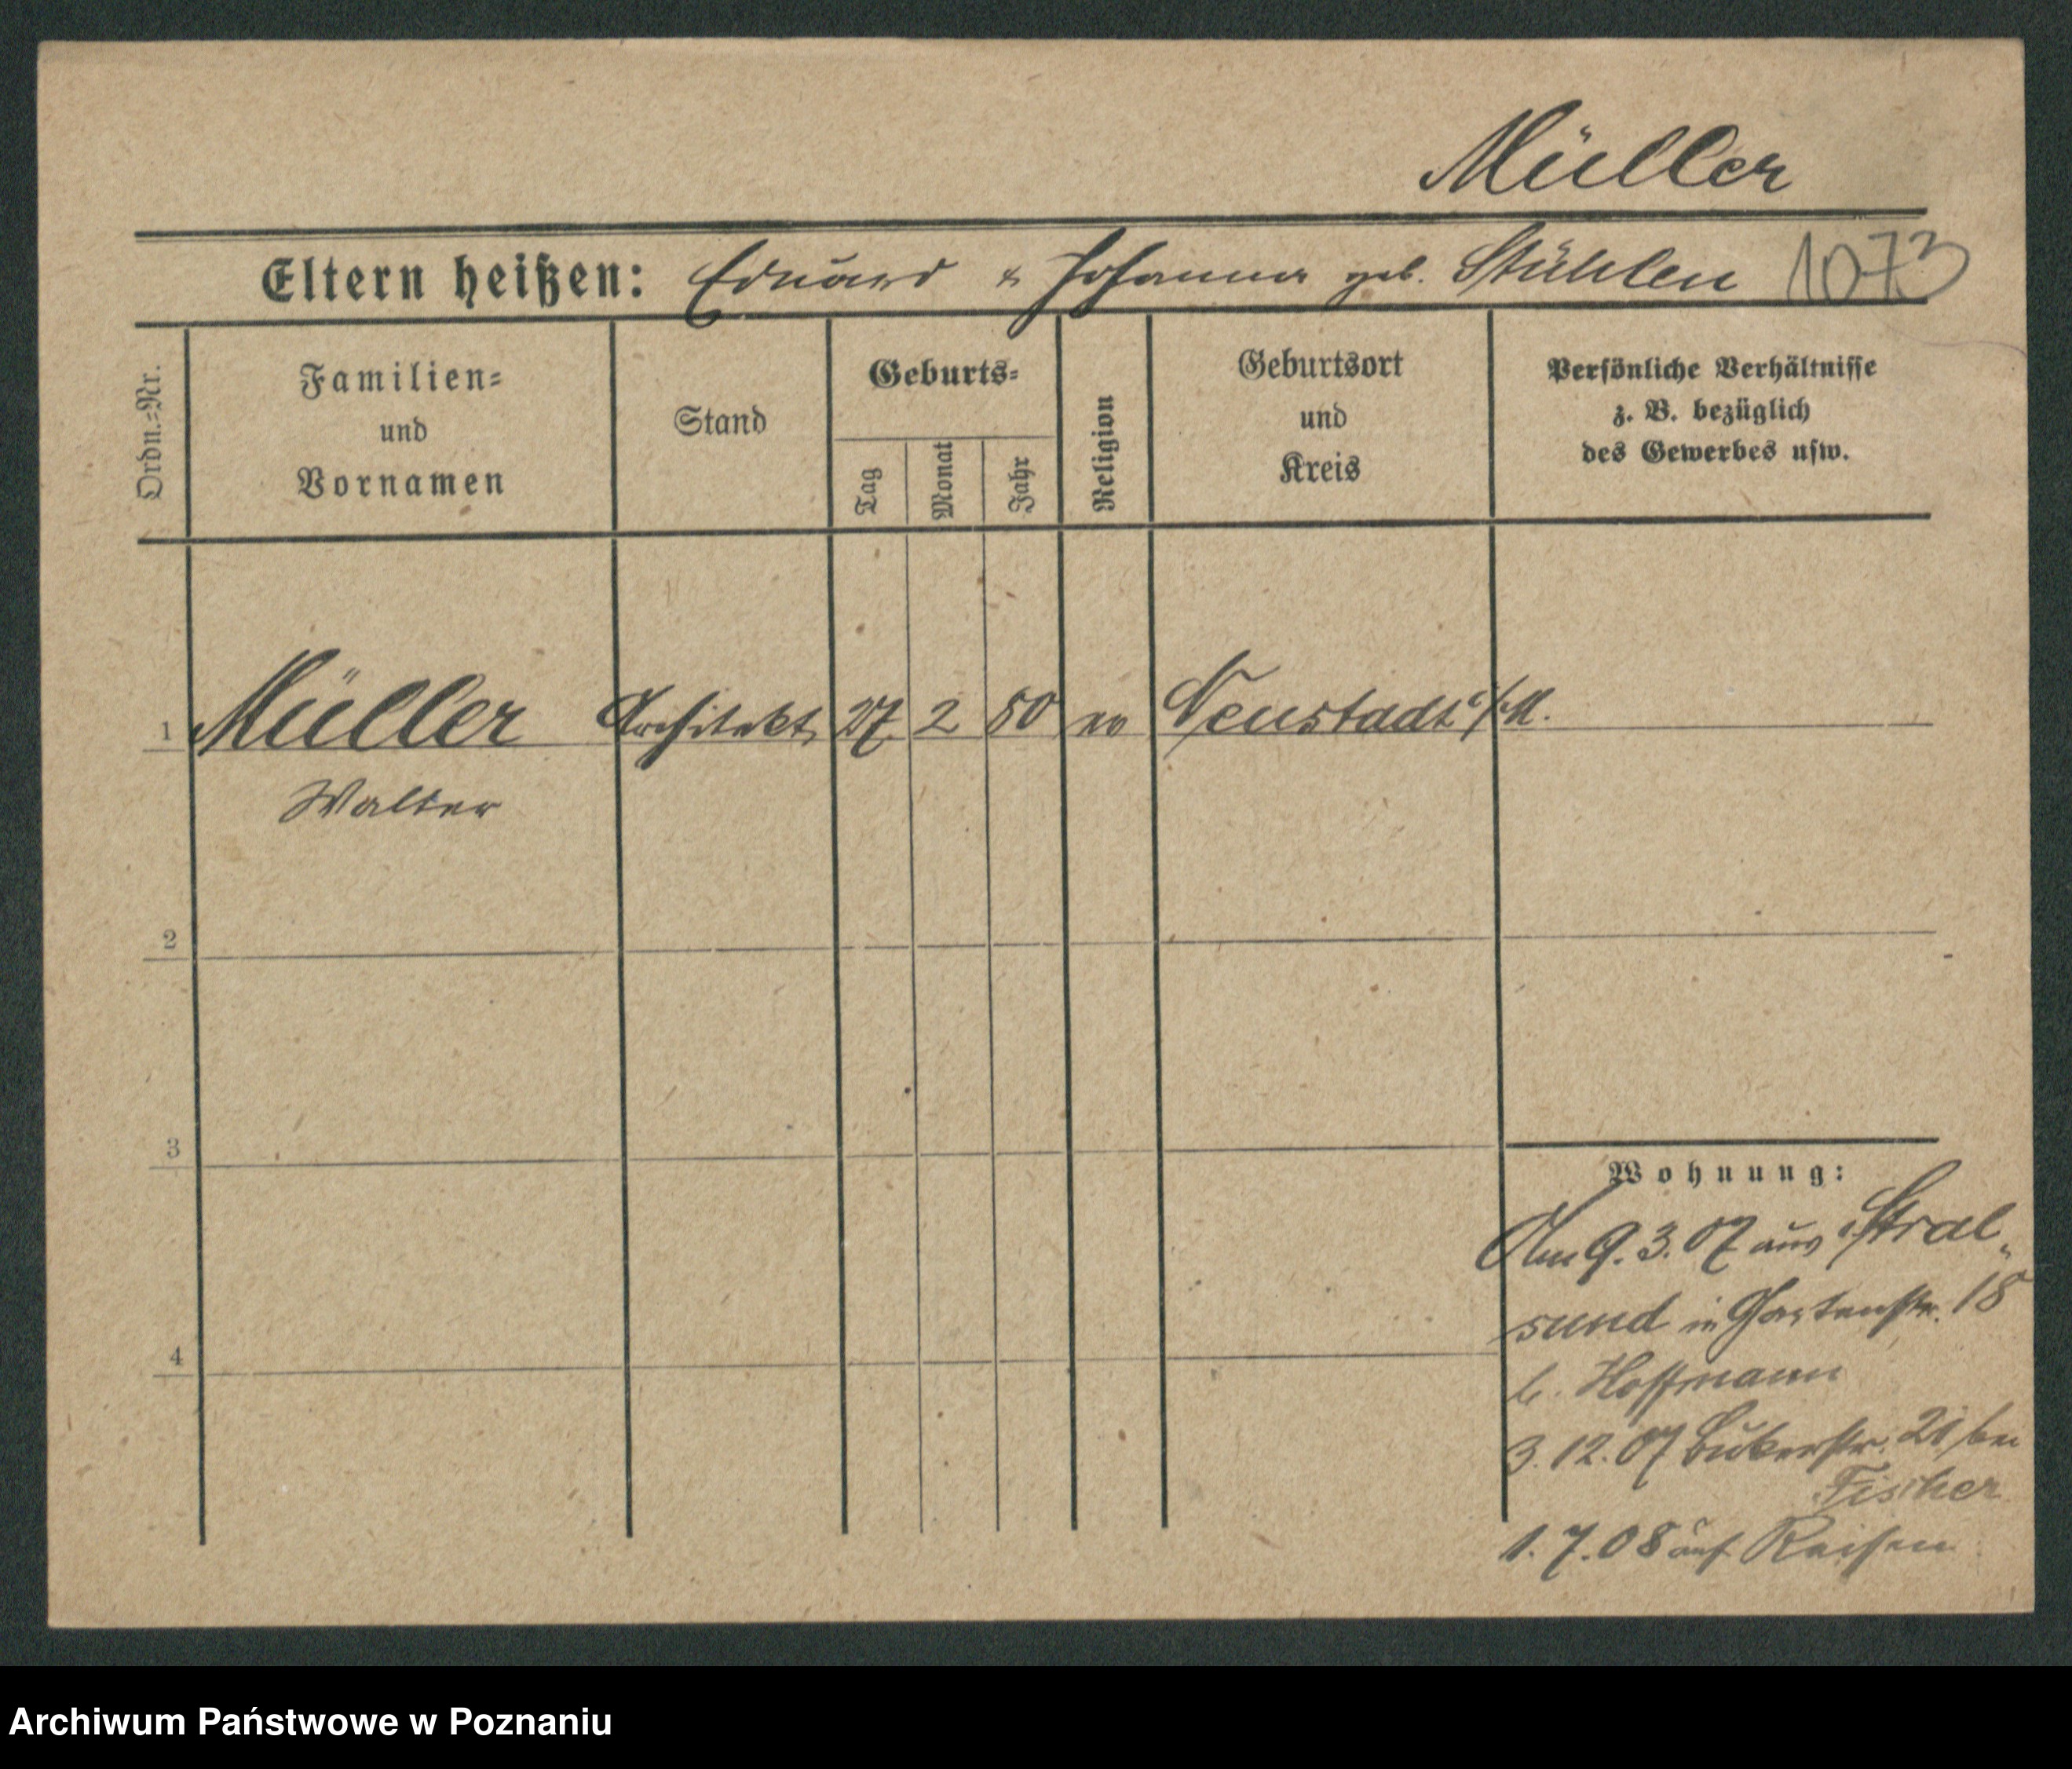 Müller
Eltern heißen: Eduard & Johanna geb. Stühlen 1073
Ordn.=Nr.
Familien=
und
Vornamen
Stand
Geburts=
Tag
Monat
Jahr
Religion
Geburtsort
und
Kreis
Persönliche Verhältnisse
z. B. bezüglich
des Gewerbes usw.
1 Müller Architekt 27. 2 80 ev Neustadt /M.
Walter
2
3
4
Wohnung:
Am 9. 3. 07 aus Stral„
sund in Gartenstr. 18
b. Hoffmann
3. 12. 07 Bukerstr. 21 bei
Fischer
1. 7. 08 auf Reisen
Archiwum Państwowe w Poznaniu